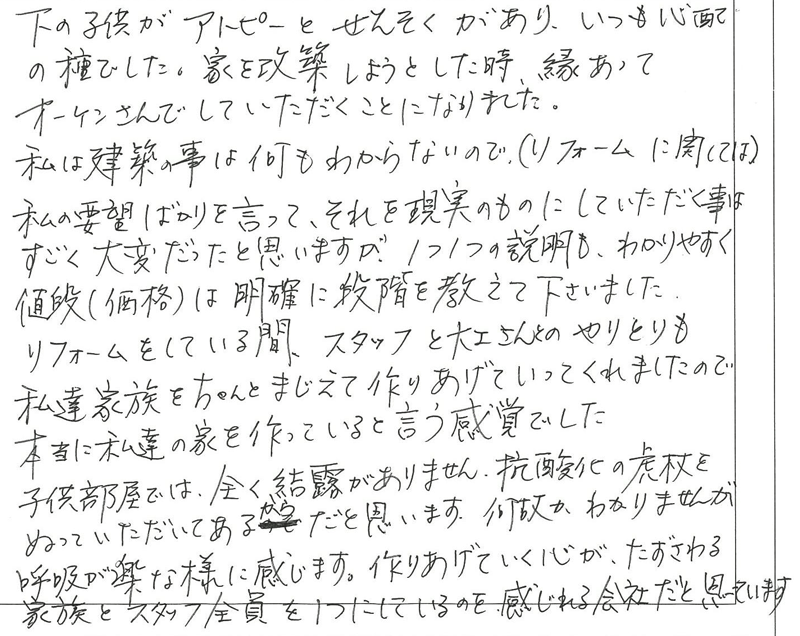 下の子供が アトピーと ぜんそく があり、いつも心配
の種でした。家を改築 しようとした時、縁あって
オーケンさんでしていただくことになりました。
私は建築の事は何もわからないので、(リフォームに関しては)
私の要望ばかりを言って、それを現実のものにしていただく事は
すごく大変だったと思いますが、1つ1つの説明も、わかりやすく
値段(価格)は明確に段階を教えて下さいました。
リフォームをしている間、スタッフと大工さんとのやりとりも
私達家族をちゃんとまじえて作りあげていってくれましたので
本当に私達の家を作っていると言う感覚でした
子供部屋では、全く結露がありません。抗酸化の虎杖を
ぬっていただいてある からだと思います。何故か、わかりませんが
呼吸が楽な様に感じます。作りあげていく心が、たずさわる
家族とスタッフ全員を1つにしているのを感じれる会社だと思っています